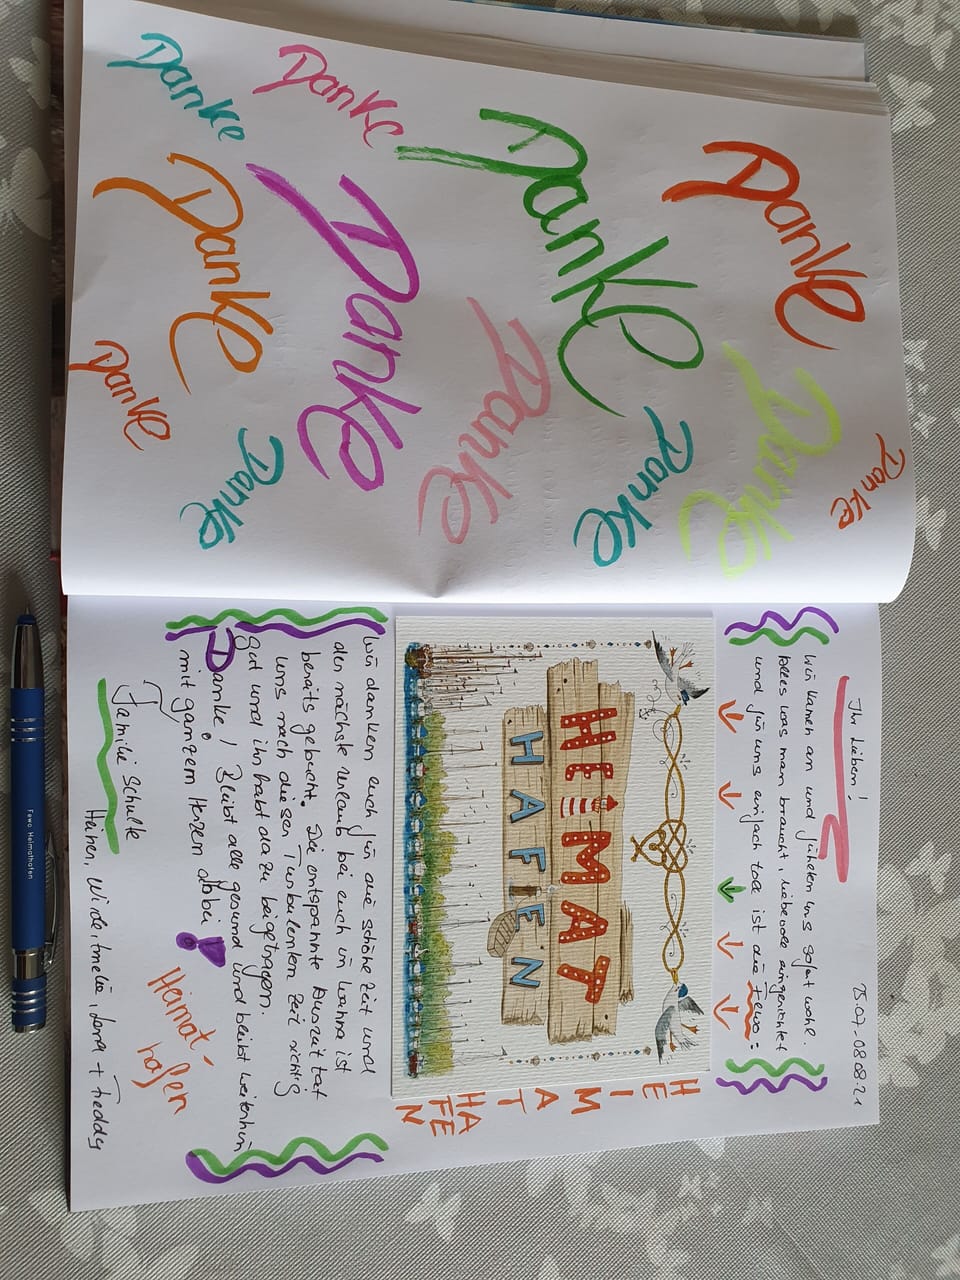 Danke
Danke
Danke
Danke
Danke
Danke
Danke
Danke
Danke
Danke
Danke
Danke
25.07.-08.08.21
Ihr Lieben!
Wir kamen an und fühlten uns sofort wohl.
Alles was man braucht, liebevoll eingerichtet
und für uns einfach toll ist die Fewo:
HEIMAT
HAFEN
H
E
I
M
A
T
HA
FE
N
Wir danken euch für die schöne Zeit und
der nächste Urlaub bei euch im Wohna ist
bereits gebucht. Die entspannte Auszeit tat
uns nach diesen Turbulenten Zeit richtig
gut und ihr habt dazu beigetragen.
Danke! Bleibt alle gesund und bleibt weiterhin
mit ganzem Herzen dabei!
Heimat-
hafen
Familie Schulte
Heiner, Lena + Freddy
Fewo Heimathafen